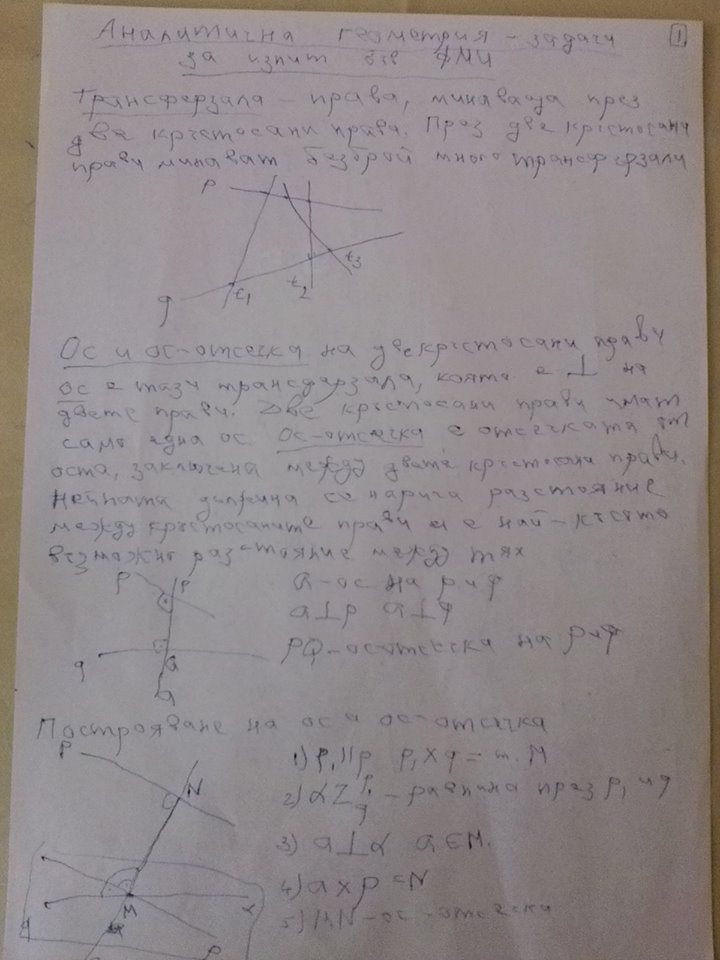 Аналитична геометрия - задачи 1
за изпит във ФМИ
Трансферзала - права, минаваща през
две кръстосани прави. През две кръстосани
прави минават безброй много трансферзали
p
q t1 t2 t3
Ос и ос-отсечка на две кръстосани прави
ос е тази трансферзала, която е ⊥ на
двете прави. Две кръстосани прави имат
само една ос. Ос-отсечка е отсечката от
оста, заключена между двете кръстосани прави.
Нейната дължина се нарича разстояние
между кръстосаните прави и е най-късото
възможно разстояние между тях
p P a-ос на p и q
a⊥p a⊥q
q Q PQ-ос-отсечка на p и q
a
Построяване на ос и ос-отсечка
p 1) p₁||p p₁×q = т. M
N 2) αZ p₁ q - равнина през p₁ и q
3) a⊥α a∈M.
4) a×p = N
M 5) MN-ос-отсечка
a